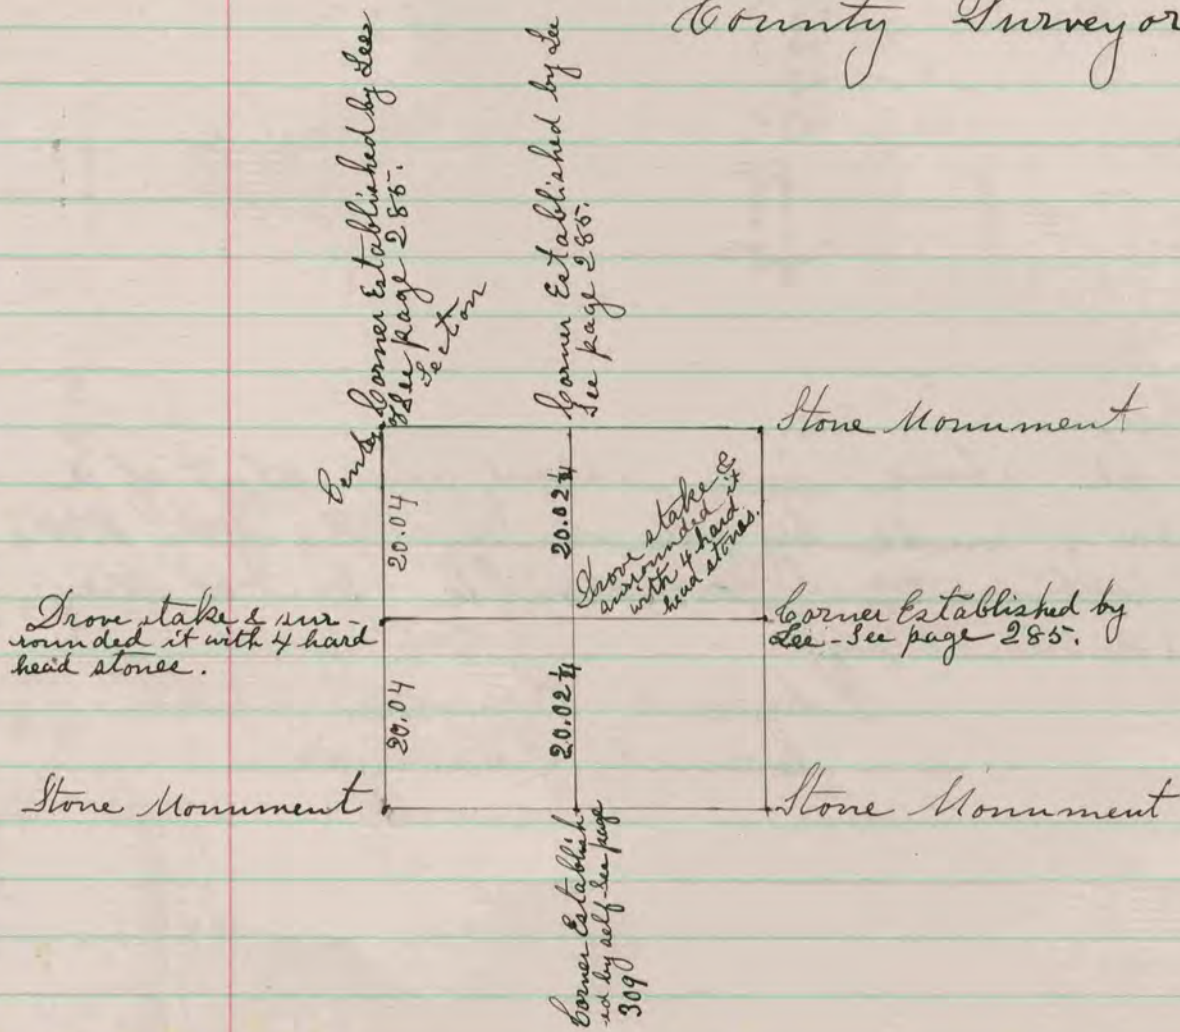 County Surveyor
Corner Established by Lee
See page 285.
Center of
Section
Corner Established by Lee
See page 285.
Stone Monument
20.04
20.02 1/4
Drove stake &
surrounded it
with 4 hard
head stones.
Drove stake & sur-
rounded it with 4 hard
head stones.
Corner Established by
Lee - See page 285.
20.04
20.02 1/4
Stone Monument
Stone Monument
Corner Establish-
ed by self - See page
309